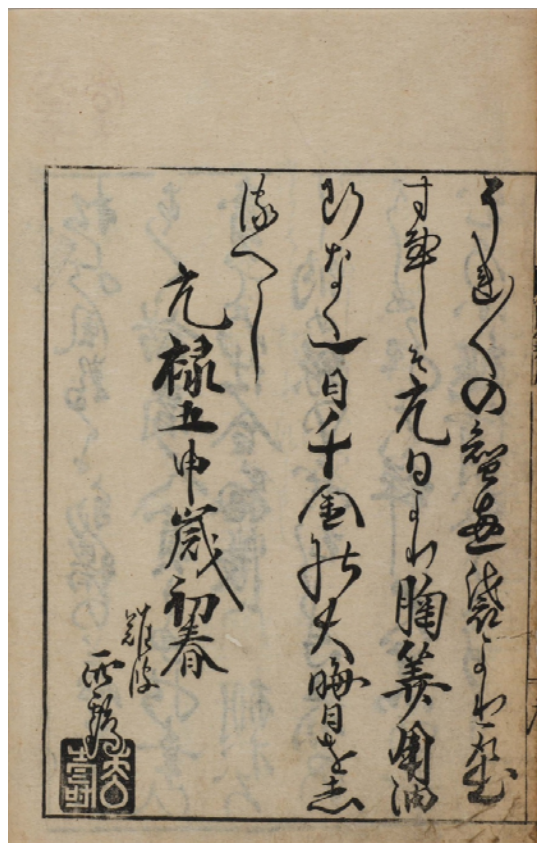 それ〳〵の智恵袋より取出
す事そ元日より胸算用油
断なく一日千金の大晦日を志
るへし
元禄五申歳初春
難波
西鶴
松寿